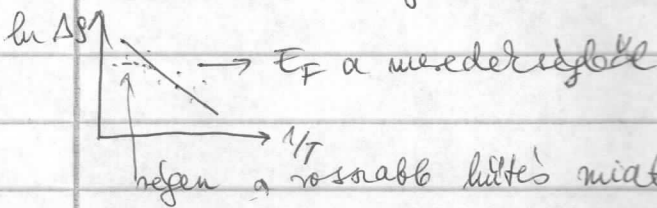 ln Δρ
→ E_F a meredekségből
1/T
régen a rosszabb hűtés miatt